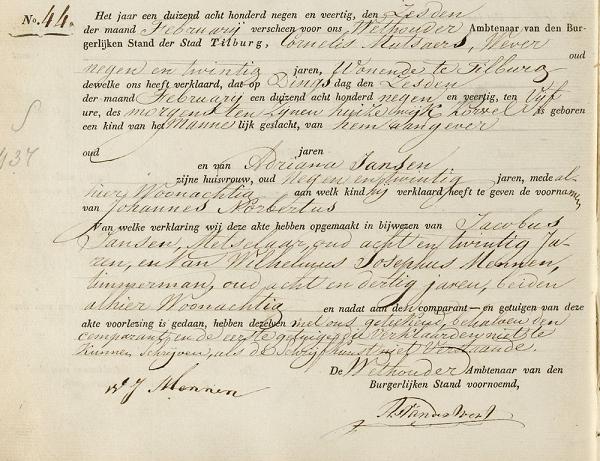 No. 44. Het jaar een duizend acht honderd negen en veertig, den Zesden
der maand Februarij verscheen voor ons Wethouder Ambtenaar van den Bur-
gerlijken Stand der Stad Tilburg, Cornelis Mutsaers, Wever
oud
negen en twintig jaren, Wonende te Tilburg
dewelke ons heeft verklaard, dat op Dings dag den Zesden
der maand Februarij een duizend acht honderd negen en veertig, ten Vijf
ure, des morgens ten zijnen huize wijk Korvel is geboren
een kind van het Manne lijk geslacht, van hem aangever
oud jaren
en van Adriana Jansen
zijne huisvrouw, oud negen en twintig jaren, mede al-
hier Woonachtig aan welk kind hij verklaard heeft te geven de voornamen
van Johannes Norbertus
Van welke verklaring wij deze akte hebben opgemaakt in bijwezen van Jacobus
Jansen, Metselaar, oud acht en twintig Ja-
ren, en van Wilhelmus Josephus Mennen,
timmerman, oud acht en dertig jaren, beiden
alhier Woonachtig en nadat aan den comparant — en getuigen van deze
akte voorlezing is gedaan, hebben dezelven met ons geteekend, behalven den
comparant en de eerste getuige die verklaarden niet te
kunnen schrijven, als de Schrijfkunst niet Verstaande.
De Wethouder Ambtenaar van den
Burgerlijken Stand voornoemd,
W J Mennen
S
437